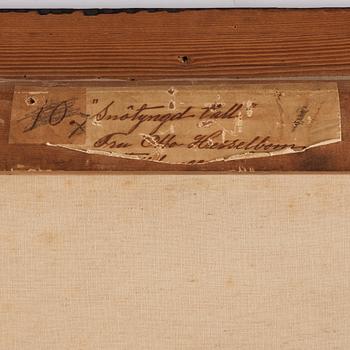 10. "Snötyngd tall"
Fru Otto Hesselbom